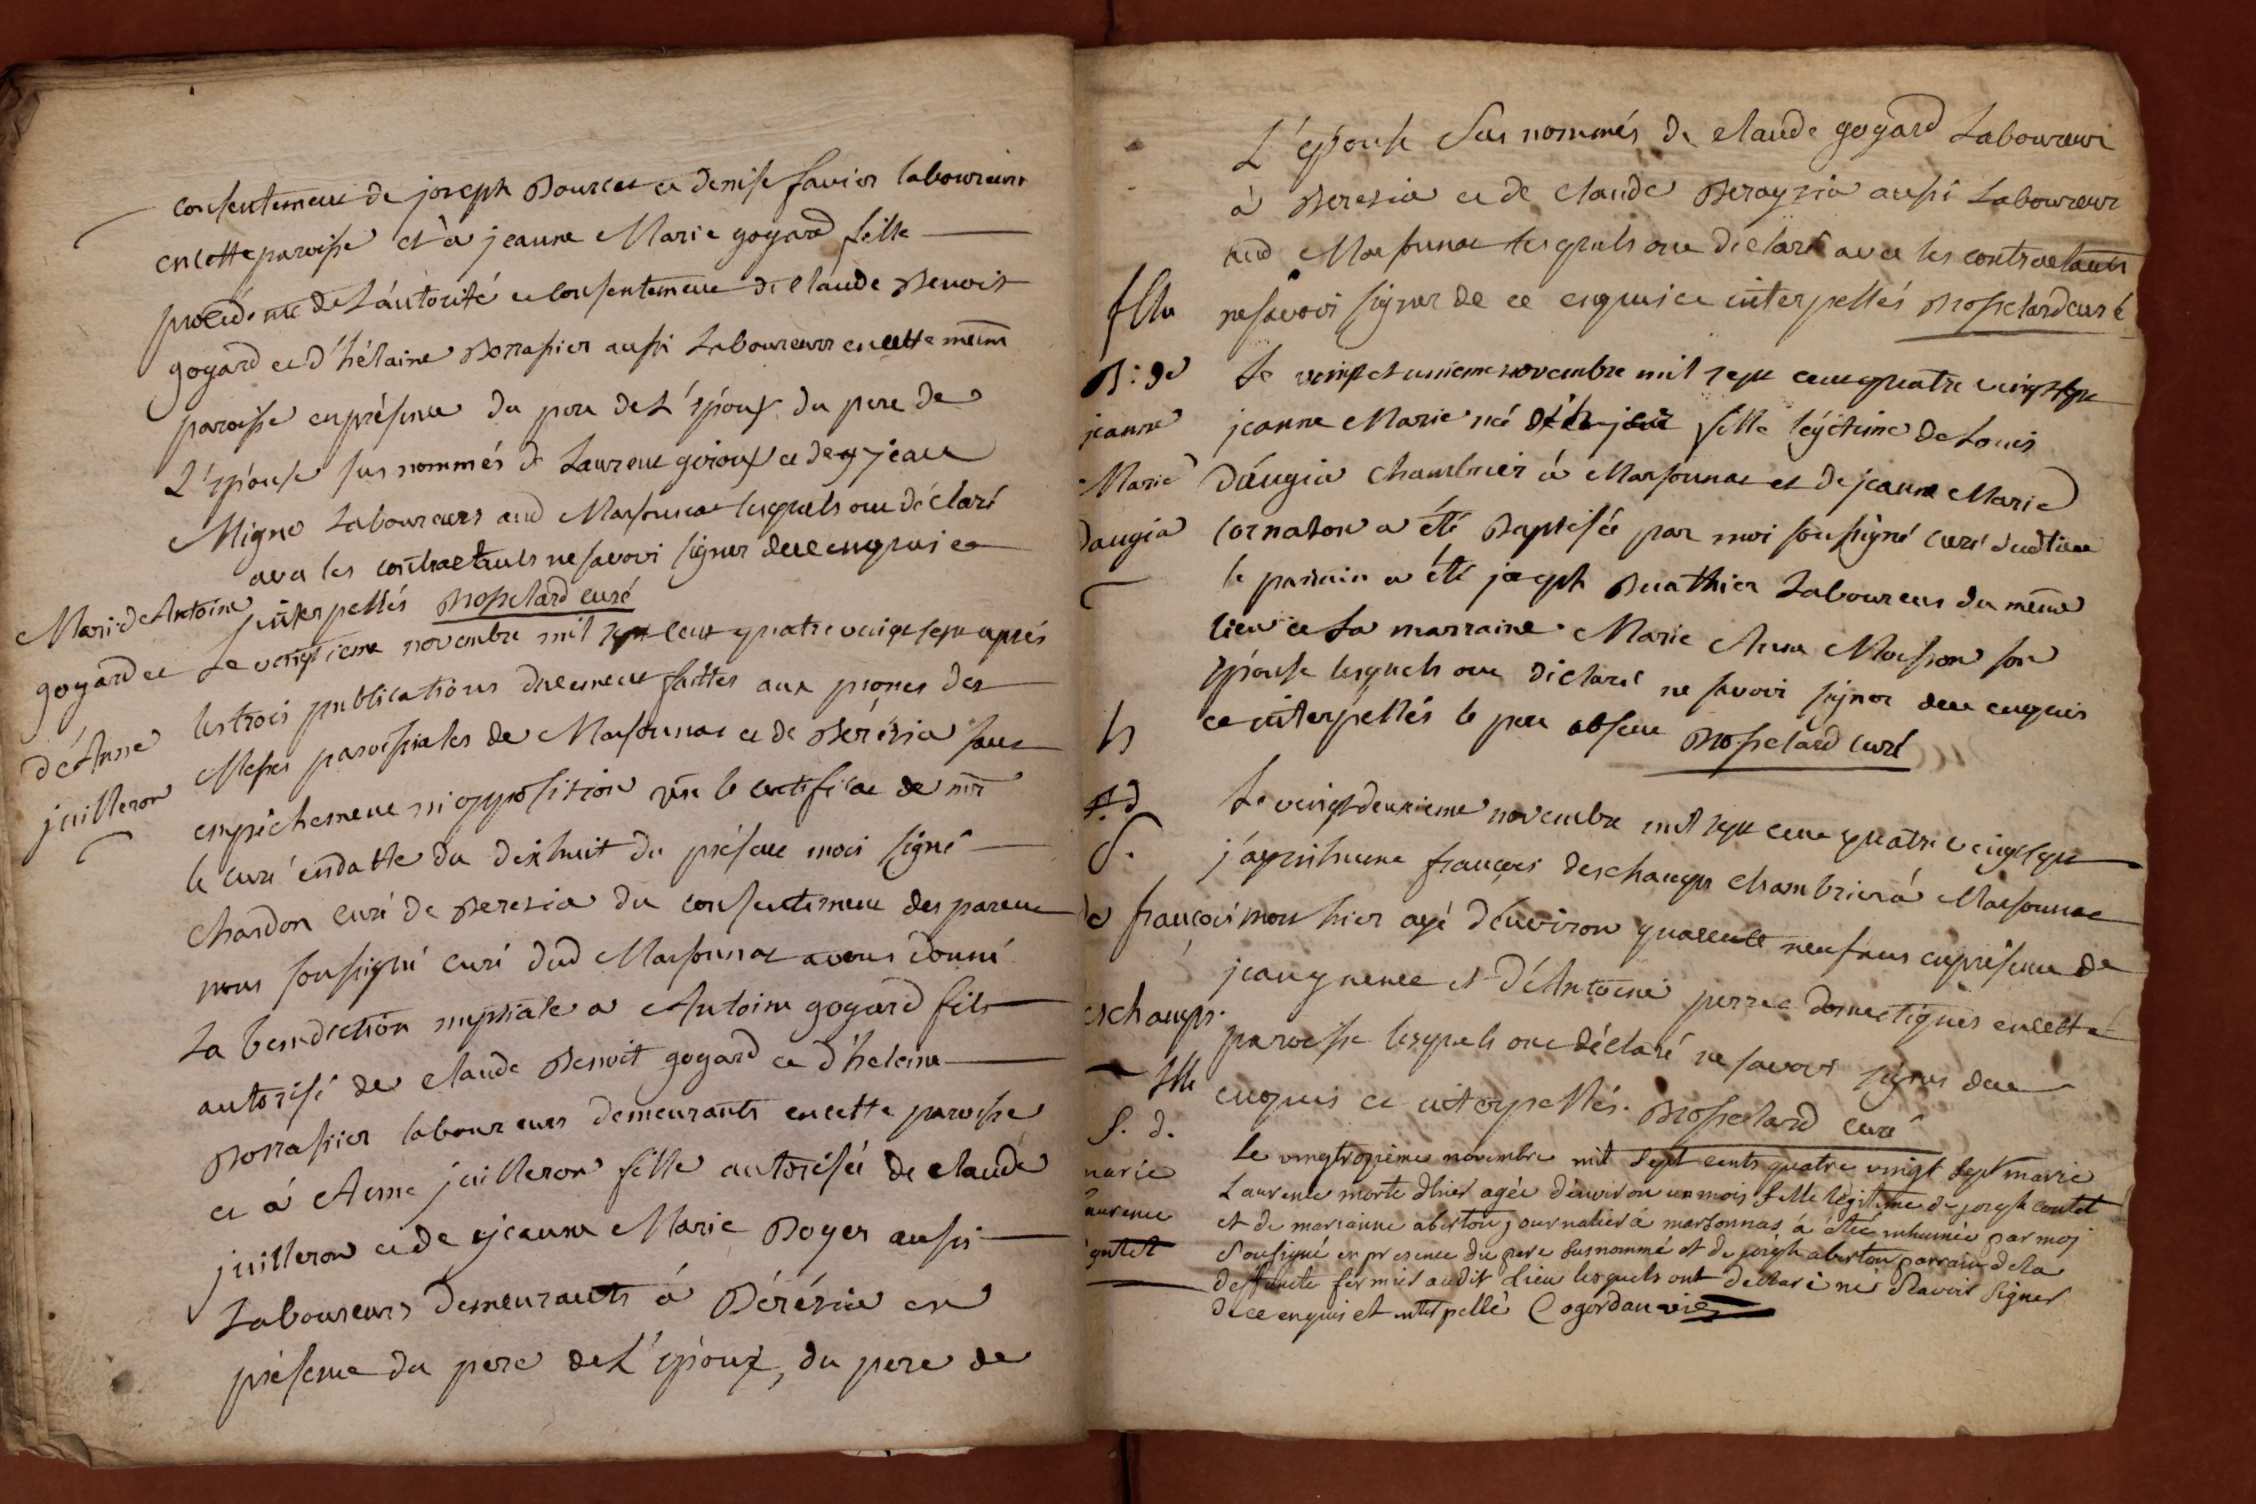 consentement de joseph Bourcet et denise favier laboureurs
en cette paroisse et à jeanne Marie gogard fille
procédente de L'autorité et consentement de Claude Benoit
gogard et d'hélaine Borrassier aussi Laboureurs en cette même
paroisse en présence du pere de L'époux du pere de
L'épouse sus nommés de Laurent giroux et de jean
Migne Laboureurs aud Marsonnas lesquels ont déclaré
avec les contractants ne savoir signer de ce enquis et
interpellés Brosselard curé
Mari. d'Antoine
gogard et
d'Anne
juilleron
Le vingtieme novembre mil sept cent quatre vingt sept après
les trois publications duement faittes aux prones des
Messes paroissiales de Marsonnas et de Bérézia sans
empêchement ni opposition vu le certificat de mr
le curé en datte du dixhuit du présent mois signé
Chardon curé de Beresia du consentement des parens
nous soussigné curé dud Marsonnas avons donné
La benediction nuptiale a Antoine gogard fils
autorisé de Claude Benoit gogard et d'heleine
Borrassier laboureurs demeurants en cette paroisse
et à Anne juilleron fille autorisée de Claude
juilleron et de jeanne Marie Boyer aussi
Laboureurs demeurants à Bérézia en
présence du pere de L'époux, du pere de
L'épouse sus nommés de Claude gogard Laboureur
à Beresia et de Claude Berayzia aussi Laboureur
aud Marsonnas lesquels ont déclaré avec les contractants
ne savoir signer de ce enquis et interpellés Brosselard curé
B: de
jeanne
Marie
daugia
Le vingt et unieme novembre mil sept cent quatre vingt sept
jeanne Marie né jour fille légitime de Louis
Daugia chambrier à Marsonnas et de jeanne Marie
Cornaton a été Baptisée par moi soussigné curé dudit lieu
le parrain a été joseph Buathier Laboureur du même
lieu et La marraine Marie Anne Moisson son
épouse lesquels ont déclaré ne savoir signer de ce enquis
et interpellés le pere absent Brosselard curé
S. d
de françois
eschamps
Le vingt deuxieme novembre mil sept cent quatre vingt sept
j'ay inhumé françois deschamps chambrier à Marsonnas
mort hier agé d'environ quarente neuf ans en présence de
et d'Antoine perret domestiques en cette
paroisse lesquels ont déclaré ne savoir signer de ce
enquis et interpellés. Brosselard curé
S. d.
marie
laurence
contet
Le vingtroisième novembre mil sept cents quatre vingt sept marie
Laurence morte d'hier agée d'environ un mois fille légitime de joseph contet
et de marianne aberton journalier à marsonnas à étée inhumée par moj
Sousigné en presence du pere susnommé et de joseph aberton parrain de la
deffunte fermier audit Lieu lesquels ont declaré ne Scavoir signer
de ce enquis et interpellé Cogordan vic